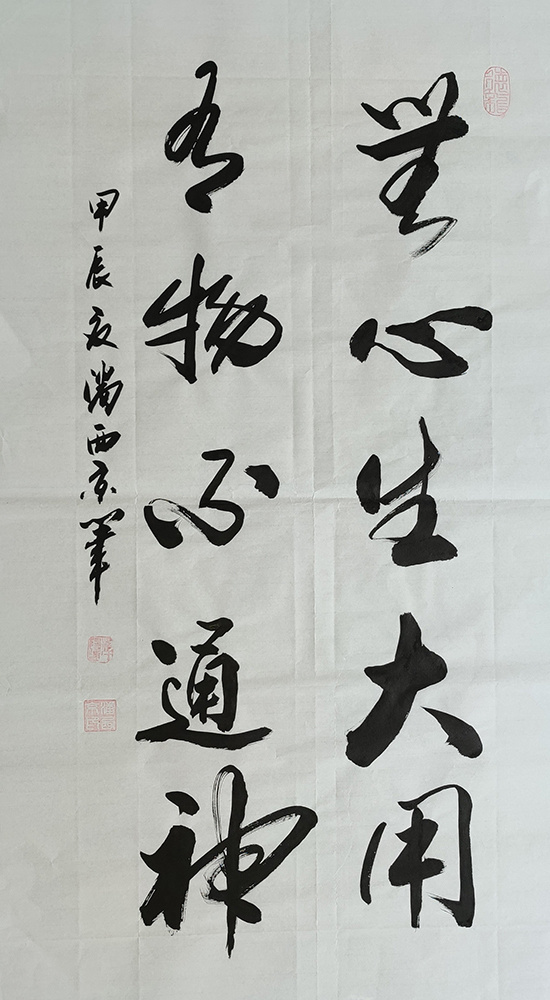 無心生大用
有物不通神
甲辰夏潘西京筆